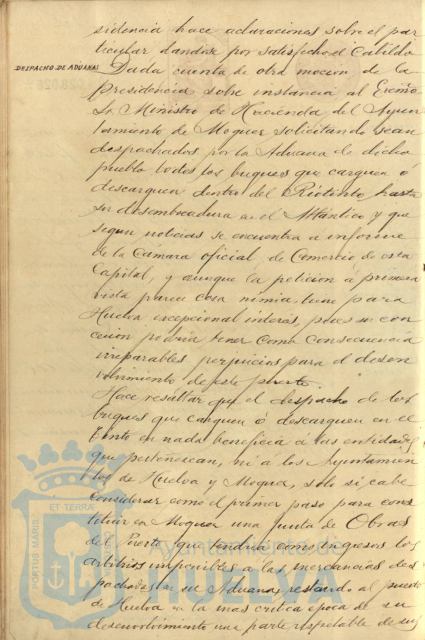 sidencia hace aclaraciones sobre el par
ticular dandose por satisfecho el Cabildo
DESPACHO DE ADUANAS
Dada cuenta de otra mocion de la
presidencia sobre instancia al Excmo
Sr. Ministro de Hacienda del Ayun
tamiento de Moguer solicitando sean
despachados por la Aduana de dicho
pueblo todos los buques que carguen ó
descarguen dentro del Riotinto hasta
su desembocadura en el Atlántico y que
segun noticias se encuentra a informe
de la Cámara oficial de Comercio de esta
Capital, y aunque la peticion á primera
vista parece cosa nimia, tiene para
Huelva excepcional interés, pues su con
cesion podria tener como consecuencia
irreparables perjuicios para el desen
volvimiento de este puerto.
Hace resaltar que el despacho de los
buques que carguen ó descarguen en el
Tinto en nada beneficia á las entidades
que pertenezcan, ni á los Ayuntamien
tos de Huelva y Moguer, solo si cabe
considerar como el primer paso para cons
tituir en Moguer una Junta de Obras
del Puerto que tendria como ingresos los
arbitrios imponibles a las mercancias des
pachadas en su Aduana, restando al puerto
de Huelva en la mas critica epoca de su
desenvolvimiento una parte respetable de sus
PORTUS MARIS ET TERRAE
Ayuntamiento de
HUELVA